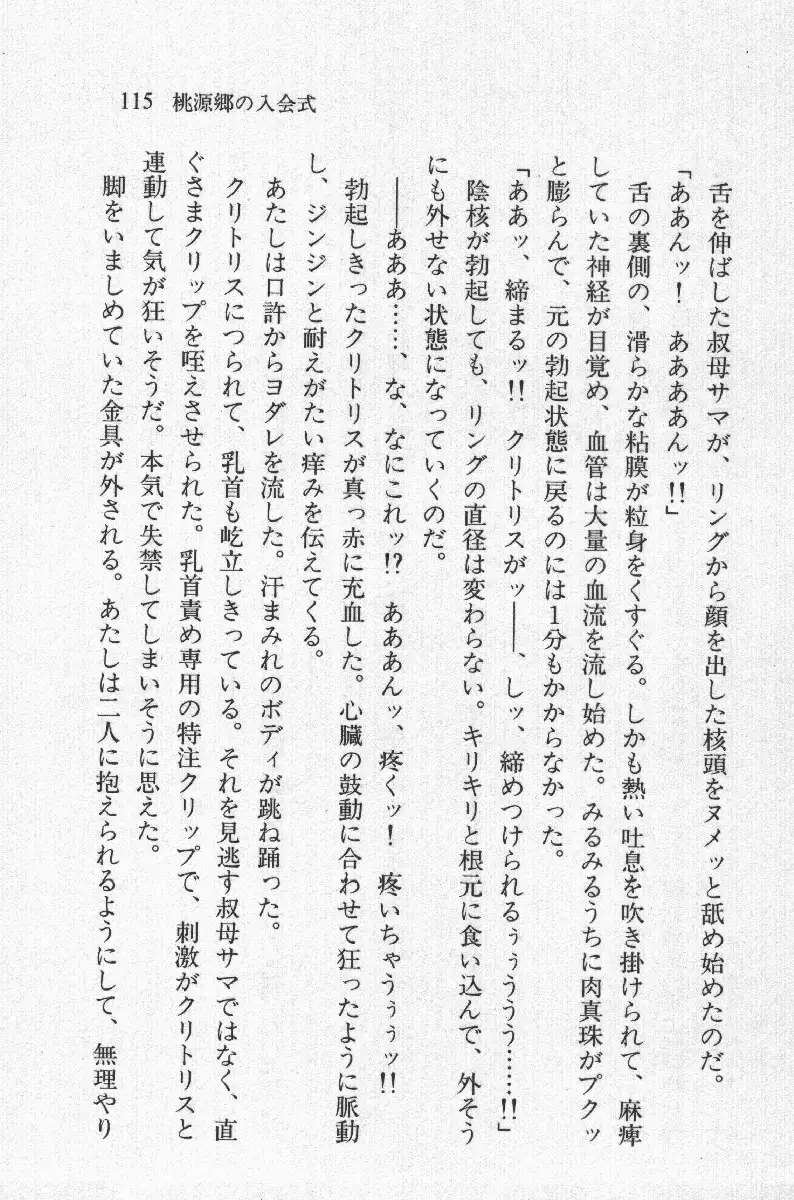 115 桃源郷の入会式
　舌を伸ばした叔母サマが、リングから顔を出した核頭をヌメッと舐め始めたのだ。
「ああんッ！　ああああんッ!!」
　舌の裏側の、滑らかな粘膜が粒身をくすぐる。しかも熱い吐息を吹き掛けられて、麻痺
していた神経が目覚め、血管は大量の血流を流し始めた。みるみるうちに肉真珠がプクッ
と膨らんで、元の勃起状態に戻るのには1分もかからなかった。
「ああッ、締まるッ!!　クリトリスがッ――、しッ、締めつけられるぅぅううう……!!」
　陰核が勃起しても、リングの直径は変わらない。キリキリと根元に食い込んで、外そう
にも外せない状態になっていくのだ。
　――あああ……、な、なにこれッ!?　あああんッ、疼くッ！　疼いちゃうぅぅッ!!
　勃起しきったクリトリスが真っ赤に充血した。心臓の鼓動に合わせて狂ったように脈動
し、ジンジンと耐えがたい痒みを伝えてくる。
　あたしは口許からヨダレを流した。汗まみれのボディが跳ね踊った。
　クリトリスにつられて、乳首も屹立しきっている。それを見逃す叔母サマではなく、直
ぐさまクリップを咥えさせられた。乳首責め専用の特注クリップで、刺激がクリトリスと
連動して気が狂いそうだ。本気で失禁してしまいそうに思えた。
　脚をいましめていた金具が外される。あたしは二人に抱えられるようにして、無理やり